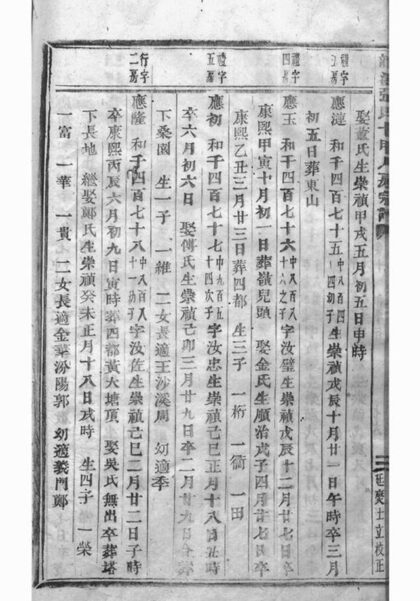 娶黃氏生崇禎甲戌五月初五日申時
禮字
應漣 和千四百七十五 中八百八十四幼子 生崇禎戊辰十月廿一日午時卒三月
初五日葬東山
禮字四房
應玉 和千四百七十六 中八百八十六之子 字汝璧生崇禎戊辰十二月廿七日卒
康熙甲寅十月初一日葬嶺兒頭 娶金氏生順治戊子四月廿七日卒
康熙乙丑三月廿三日葬四都 生三子 一桁 一衕 一田
禮字五房
應初 和千四百七十七 中九百五十四次子 字汝忠生崇禎己巳正月十八丑時
卒六月初六日 娶傅氏生崇禎己卯三月廿九日卒二月廿九日合葬
下桑園 生一子 一維 二女長適王沙溪周 幼適季
行字二房
應隆 和千四百七十八 中八百八十一幼子 字汝佐生崇禎己巳二月廿二日子時
卒康熙丙辰六月初九日寅時葬四都黃大塘頂 娶吳氏無出卒葬塔
下長地 繼娶鄭氏生崇禎癸未正月十八日亥時 生四子 一榮
一富 一華 一貴 二女長適金華汾陽郭 幼適裴門鄭